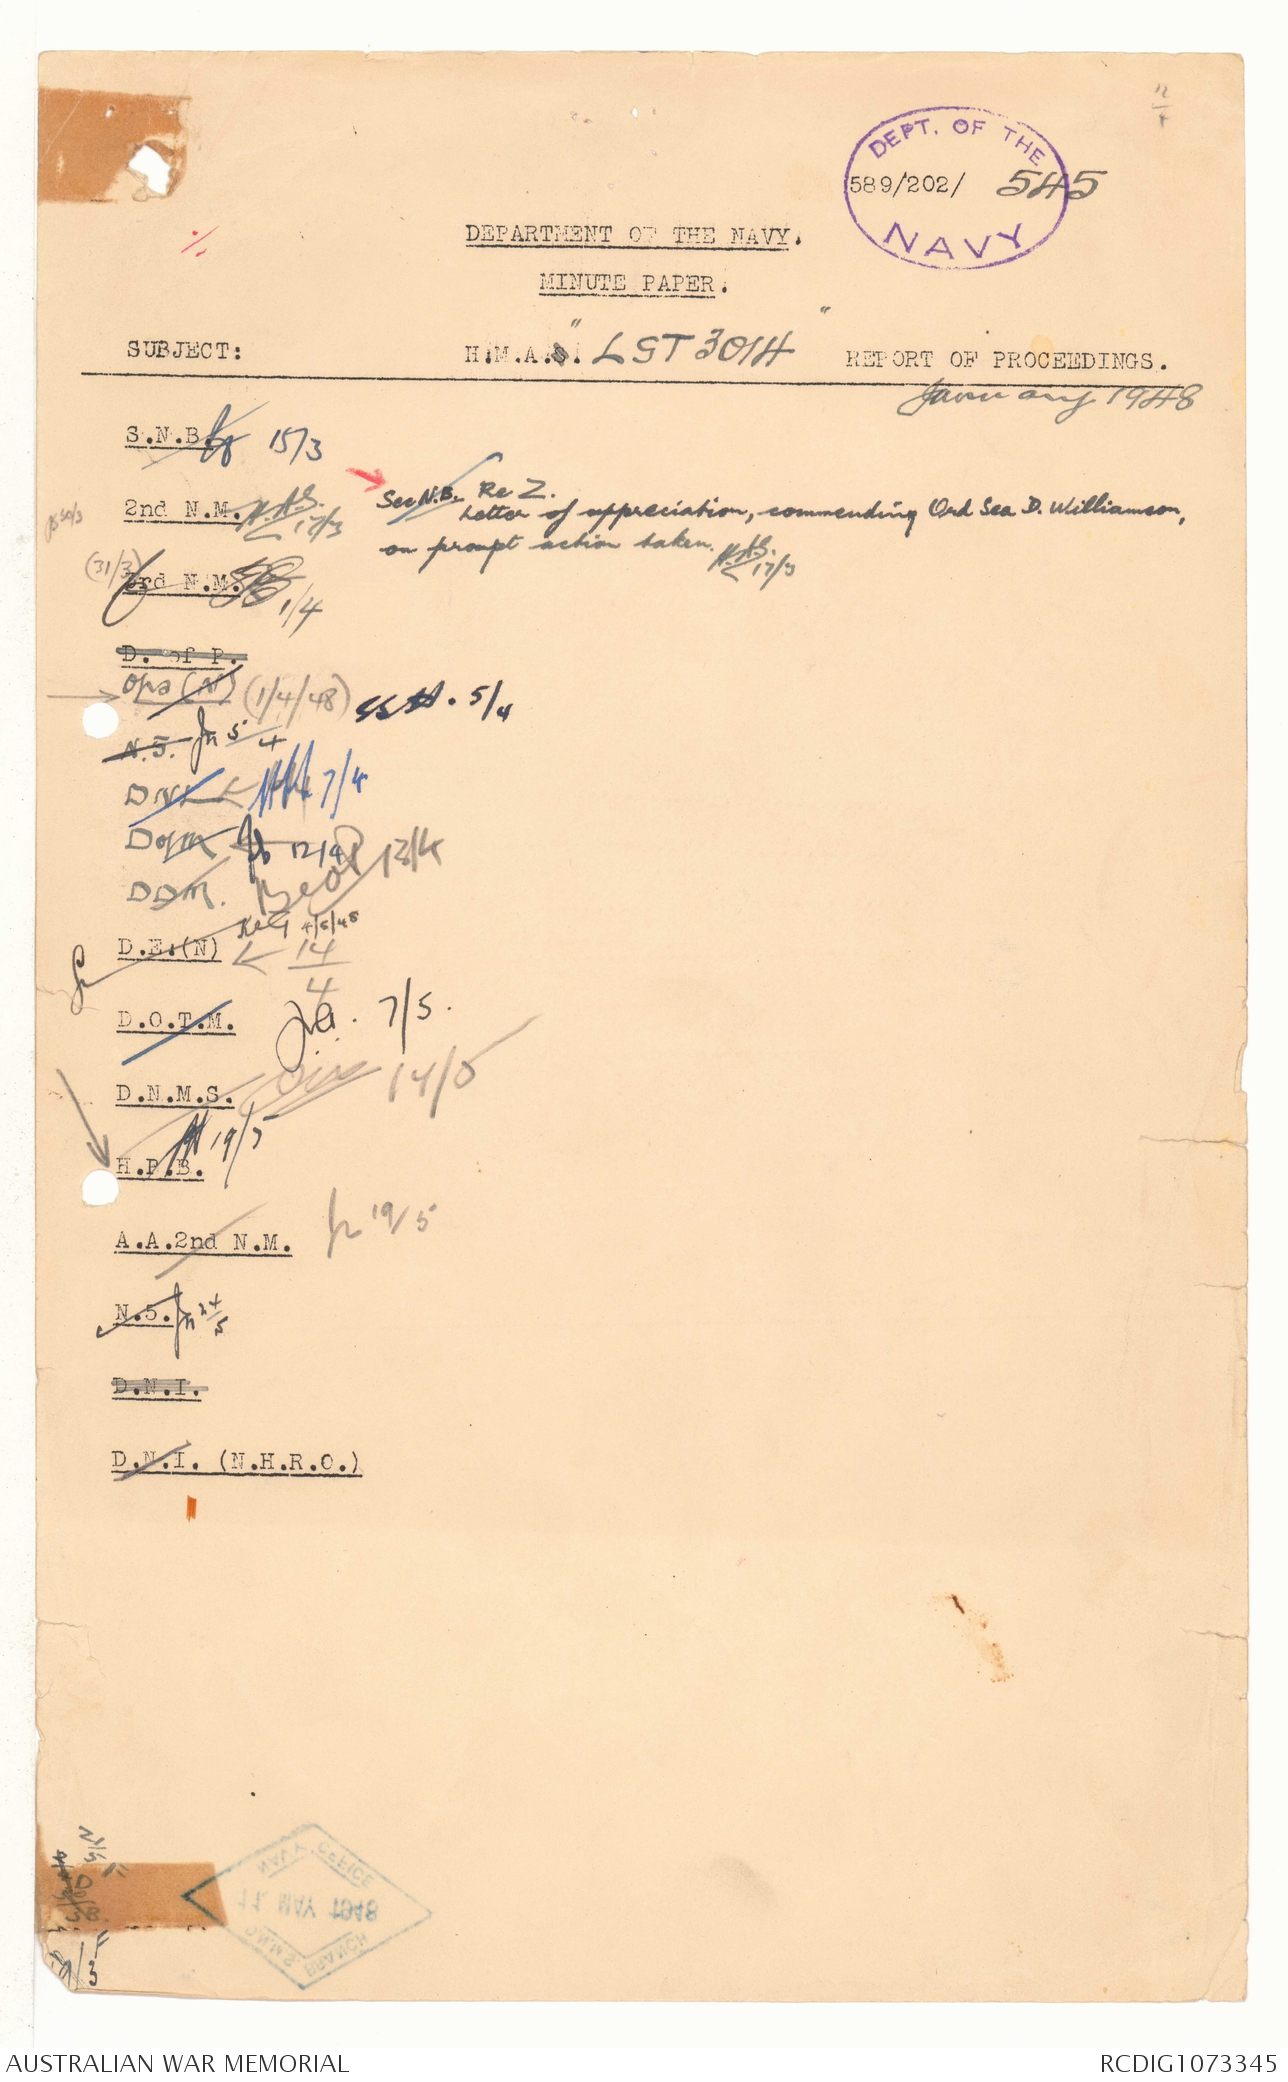 DEPT. OF THE
589/202/ 545
NAVY
DEPARTMENT OF THE NAVY.
MINUTE PAPER.
SUBJECT: H.M.A.S. "LST 3014" REPORT OF PROCEEDINGS.
January 1948
S.N.B. 15/3
Sec N.B. Re Z.
2nd N.M. 17/3
Letter of appreciation, commending Ord Sea D. Williamson,
on prompt action taken. 17/3
(31/3) 3rd N.M. 1/4
D. of P.
Ops (N) (1/4/48) 5/4
N.5. 5/4
DNI 7/4
12/4
DDM. 13/4
4/5/48
D.E.(N) 14/4
D.O.T.M. 7/5.
D.N.M.S. 14/5
H.P.B. 19/5
A.A.2nd N.M. 19/5
N.5. 24/5
D.N.I.
D.N.I. (N.H.R.O.)
NAVY OFFICE
11 MAY 1948
D.N.M.S. BRANCH
AUSTRALIAN WAR MEMORIAL RCDIG1073345